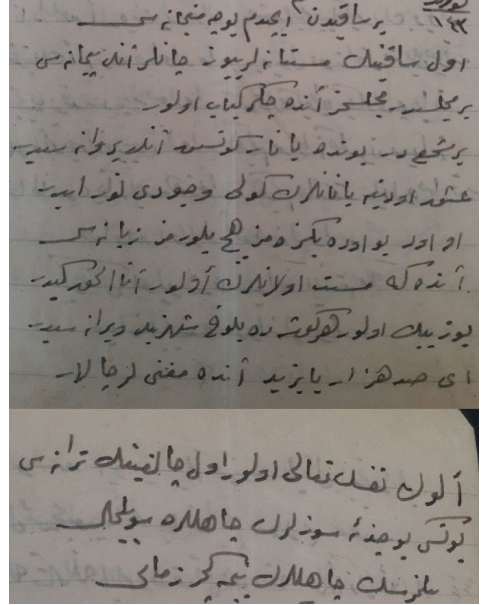 ١٤٣
بر ساقیدن ایچدم بویله میخانه سی
اول ساقینك مستانه لرییوز جانلر آنك پیمانه سی
بر مجلسدر مجلسمز آنده جكر كباب اولور
بر شمع در بونده یانار كونش آنك پروانه سیدر
عشق اودینه یانانلرك كولی وجودی نور اولور
او اود بو اوده بكزه مز هیچ بیلورمز زبانه سی
آنده كه مست اولانلرك اولور انا الحق كیدر
یوز بیك اولور هر كوشه ده بلوخ شهرینك ویرانه سیدر
ای صد هزار یا یزید آنده مغنی لر چالار
اولور اول چالغینك ترانه سی
یونس بو جذبه سوزلرك جاهللره سویلمه
بیلمزسك جاهللرك نیجه كچر زمانی